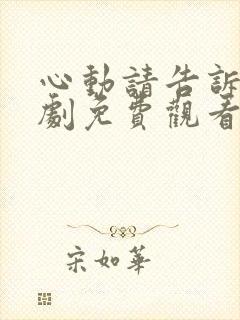 心動請告訴
劇免費觀看
宋如華